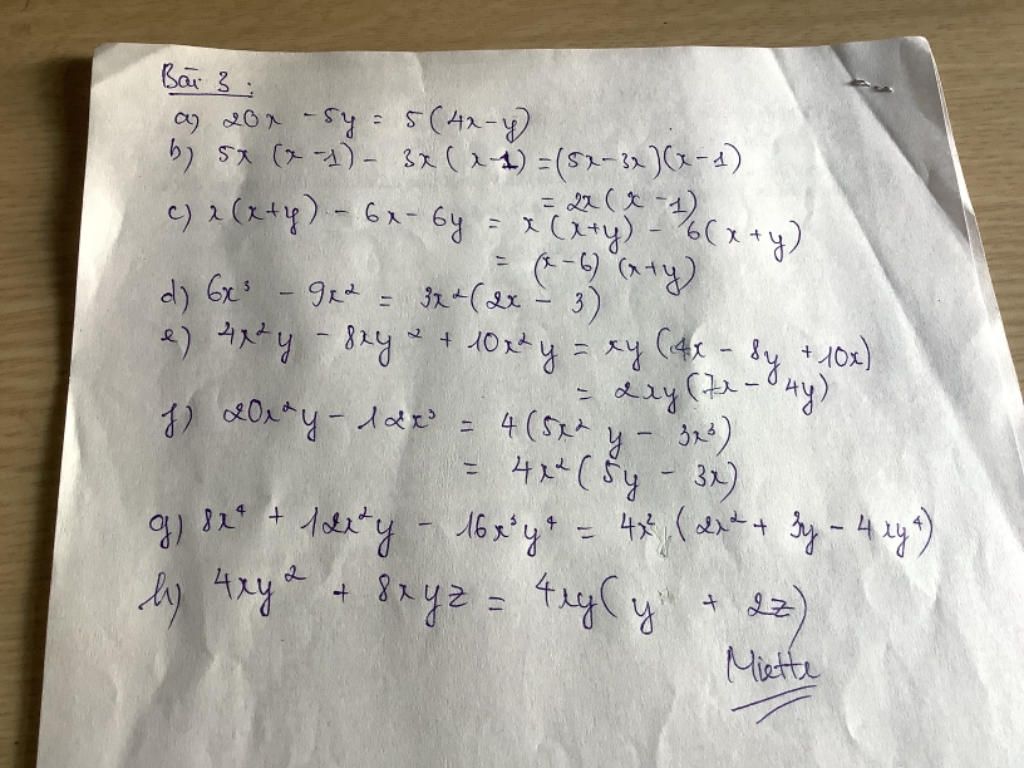 Bài 3 :
a) 20x - 5y = 5(4x-y)
b) 5x (x-1) - 3x(x-1) = (5x-3x)(x-1)
= 2x(x-1)
c) x(x+y) - 6x - 6y = x(x+y) - 6(x+y)
= (x-6)(x+y)
d) 6x³ - 9x² = 3x²(2x - 3)
e) 4x²y - 8xy² + 10x²y = xy(4x - 8y + 10x)
= 2xy(7x - 4y)
f) 20x²y - 12x³ = 4(5x²y - 3x³)
= 4x²(5y - 3x)
g) 8x⁴ + 12x²y - 16x³y⁴ = 4x²(2x² + 3y - 4xy⁴)
h) 4xy² + 8xyz = 4xy(y + 2z)
Miette